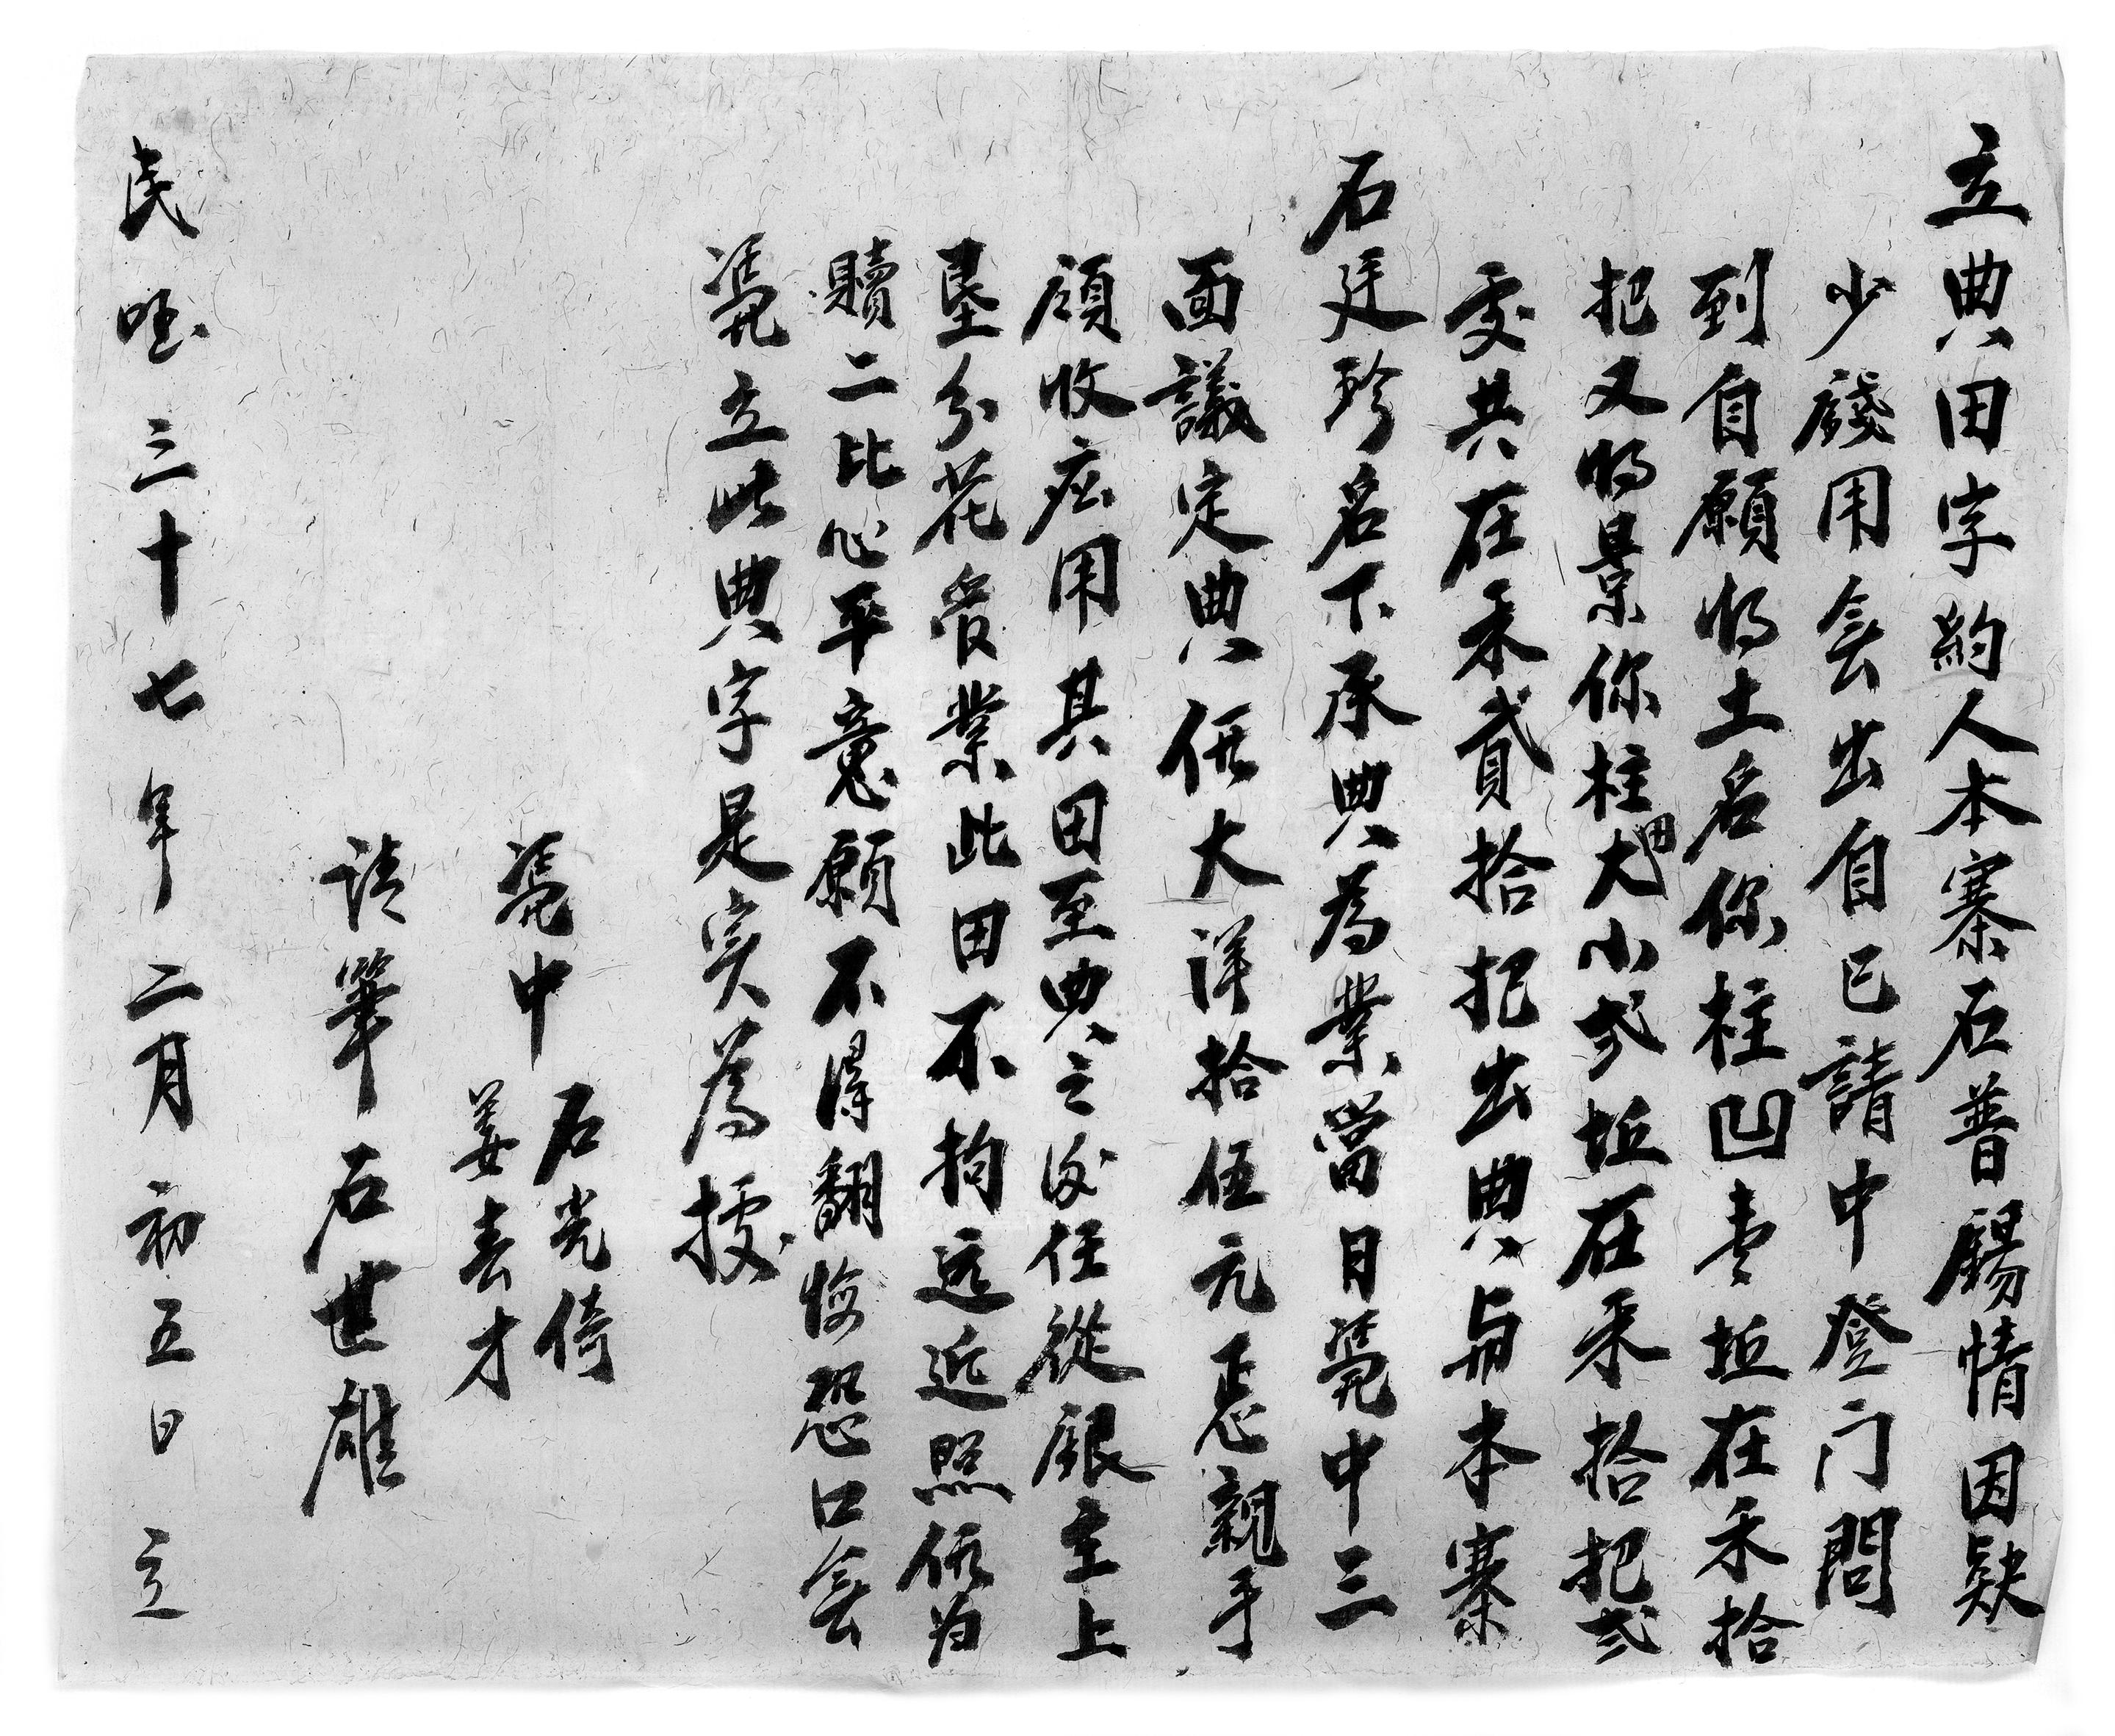 立典田字約人本寨石普賜情因缺
少錢用無出自己請中登门問
到自願将土名你柱凹壹坵在禾拾
把又将景你柱田大小弍坵在禾拾把弍
處共在禾貳拾把出典與本寨
石廷珍名下承典為業當日凴中三
面議定典價大洋拾伍元正親手
領收应用其田至典之後任從銀主上
垦分花管業此田不拘远近照價为
贖二比心平意願不得翻悔恐口無
凴立此典字是实為據
凴中 石光倚
姜春才
請筆 石世雄
民國三十七年二月初五日立